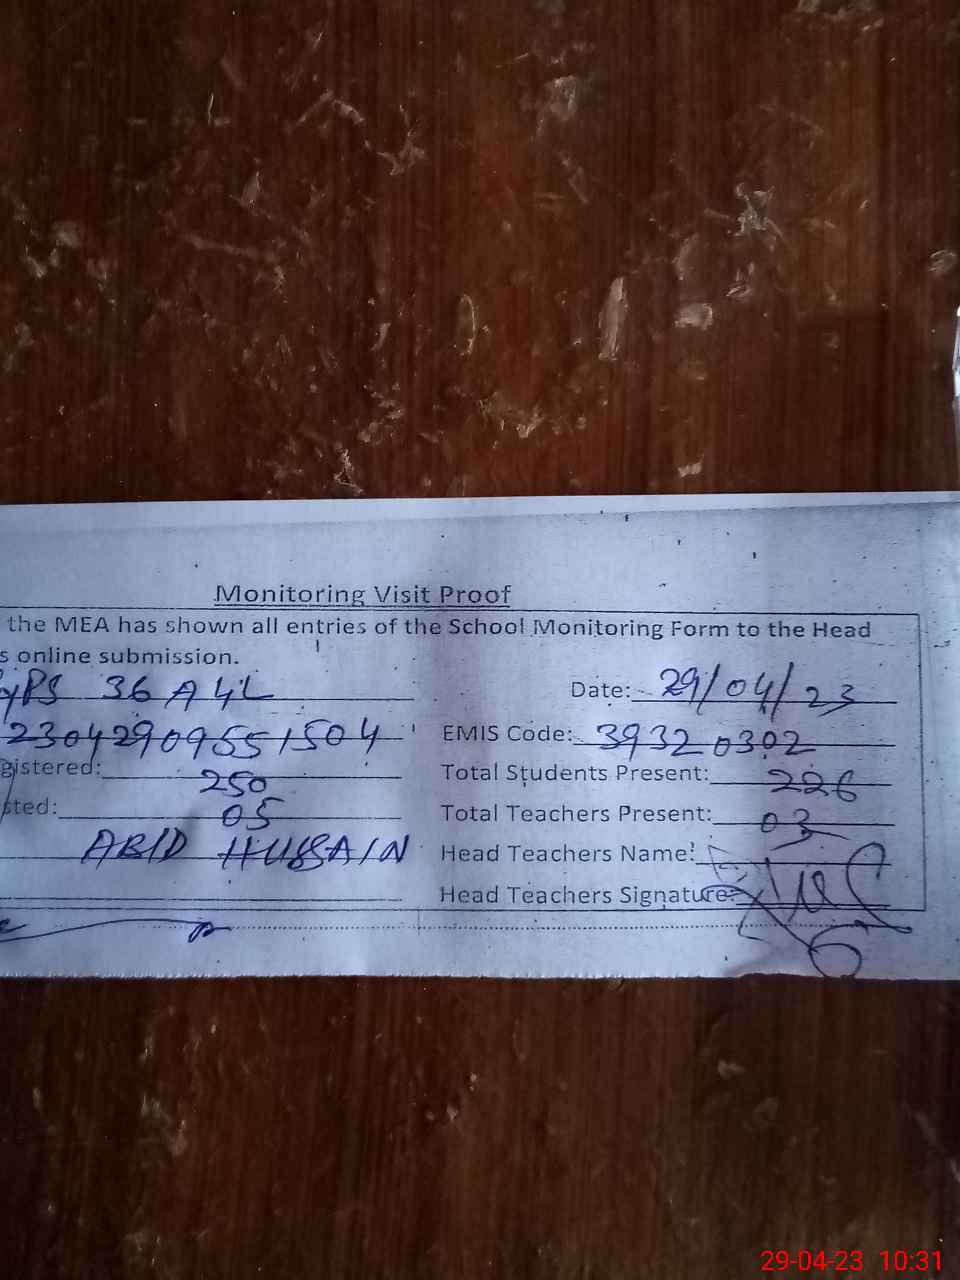 Monitoring Visit Proof
the MEA has shown all entries of the School Monitoring Form to the Head
s online submission.
PS 36 A 4L Date: 29/04/23
23042909551504 EMIS Code: 39320302
gistered: 250 Total Students Present: 226
sted: 05 Total Teachers Present: 03
ABID HUSSAIN Head Teachers Name:
Head Teachers Signature:
29-04-23 10:31